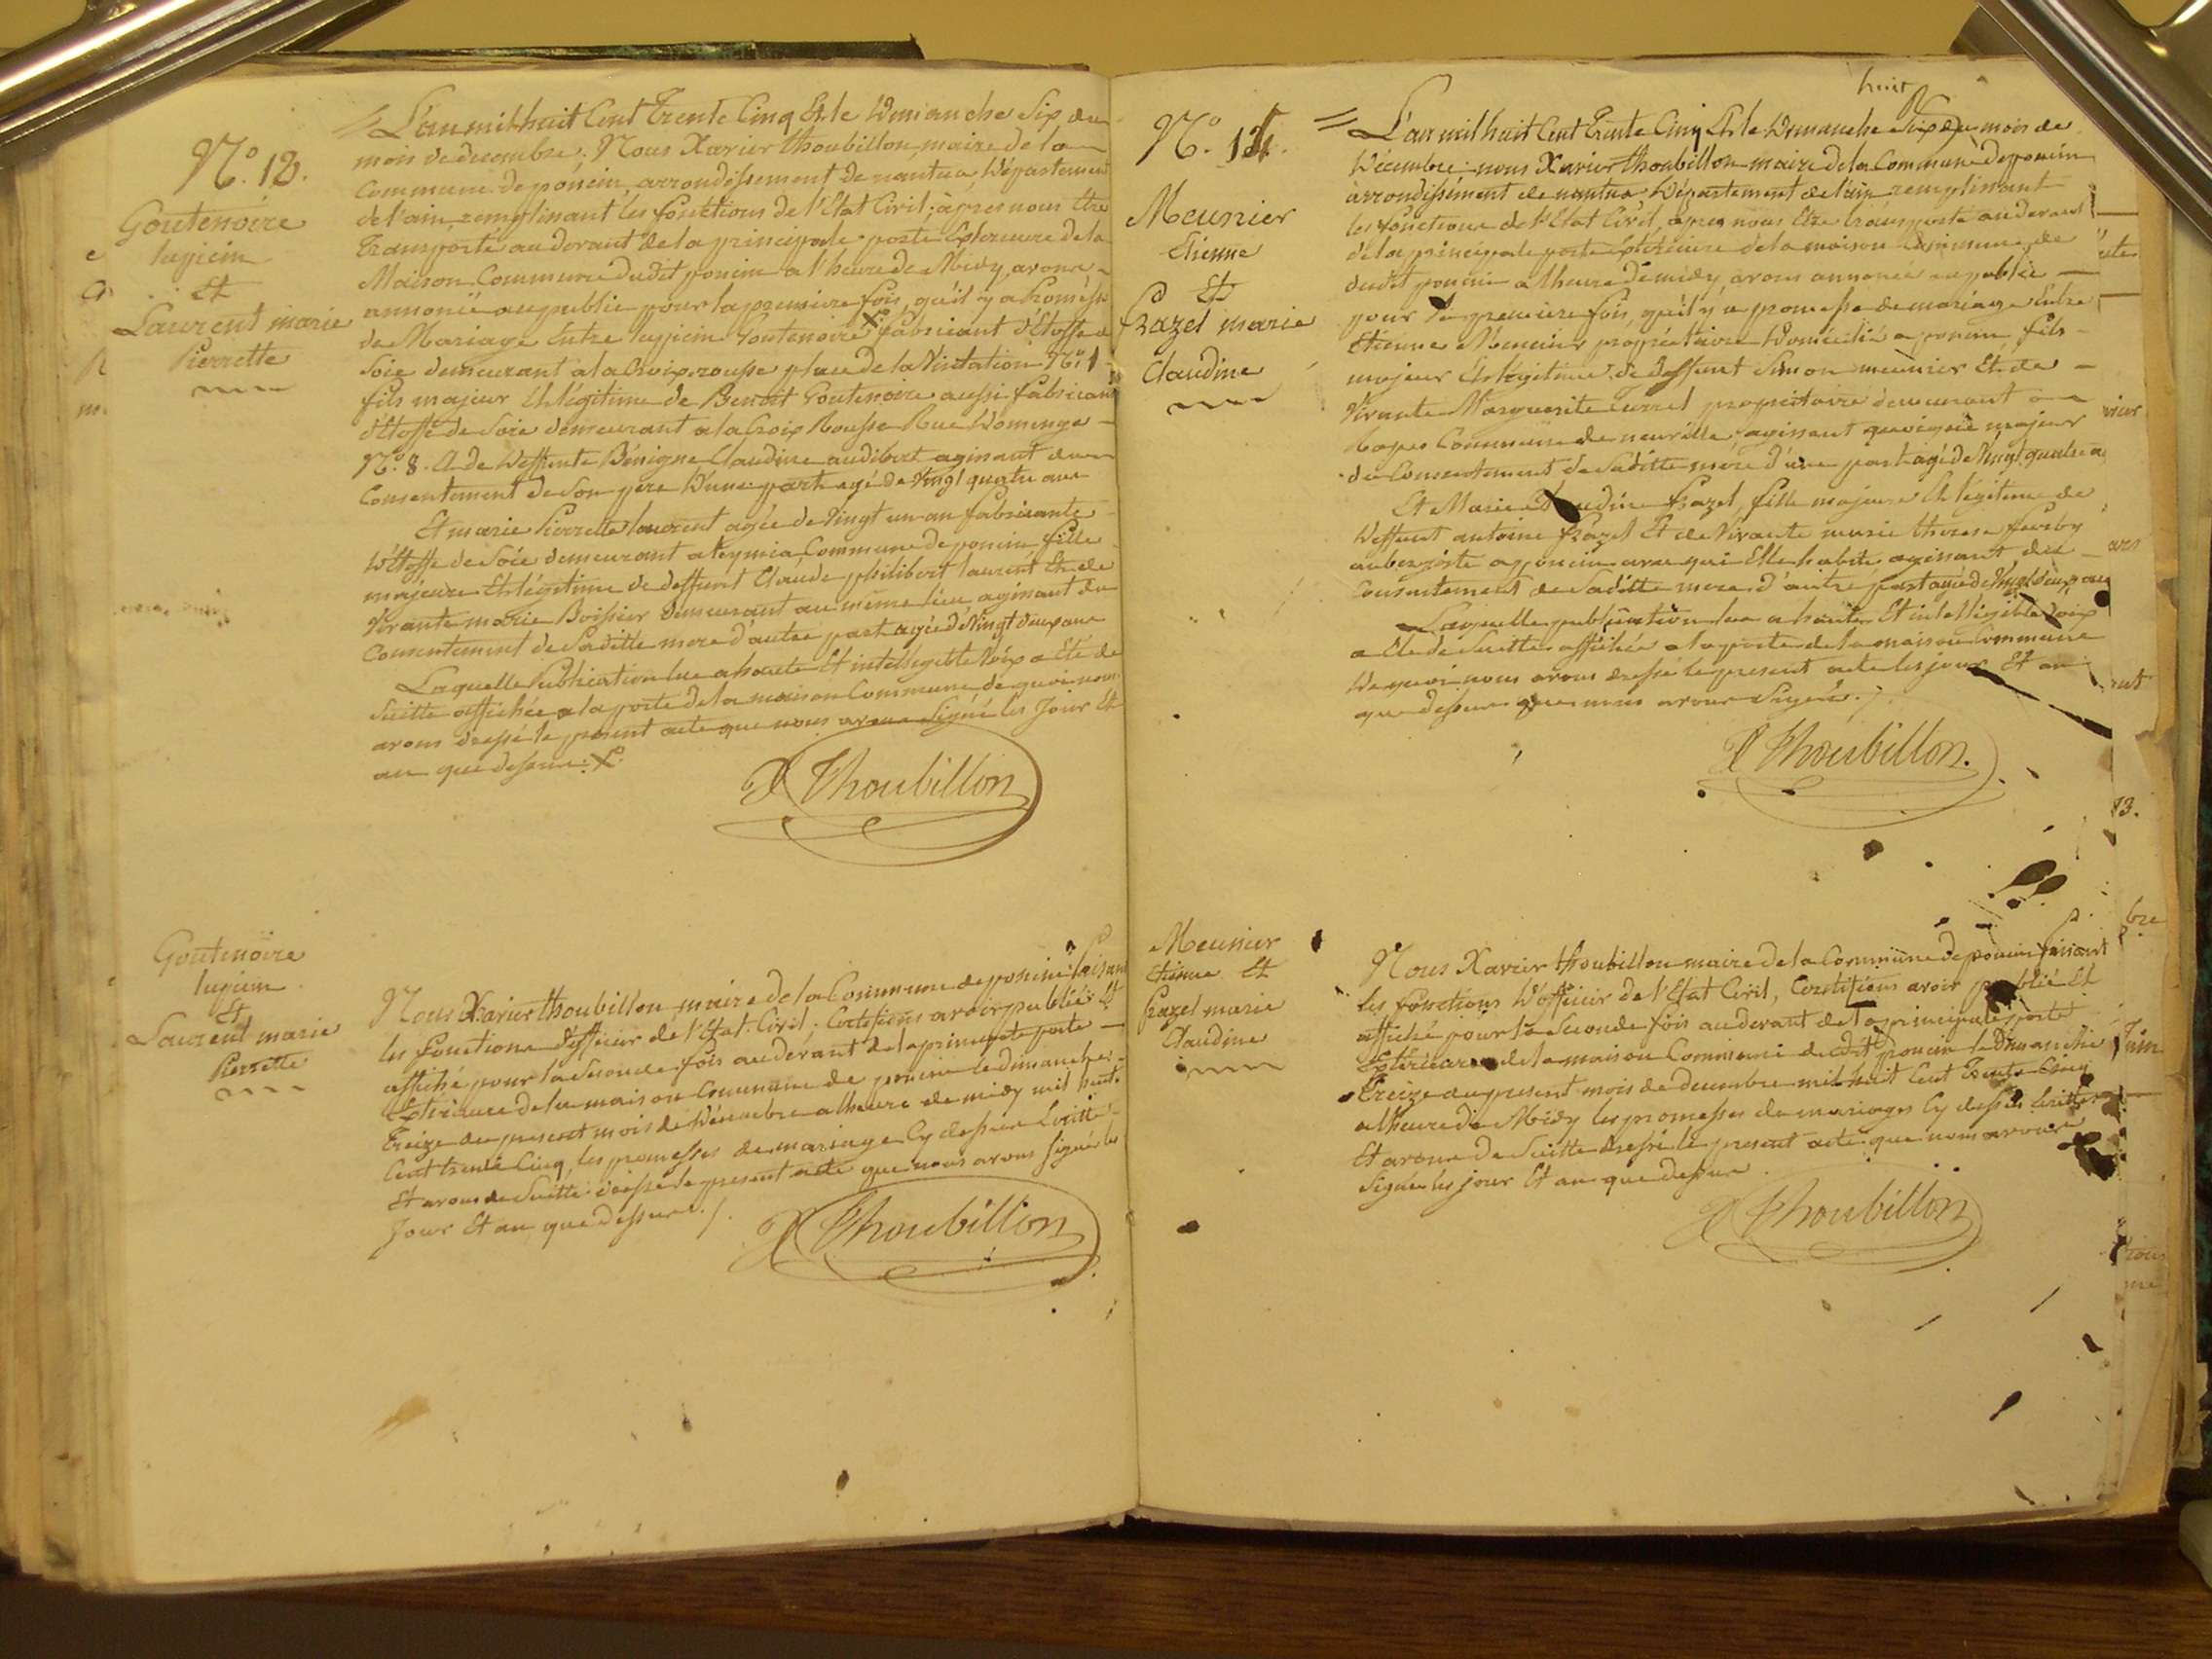 N.º 13.
Goutenoire
lupicin
Et
Laurent marie
Pierrette
L'an mil huit Cent Trente Cinq Et le Dimanche Six du
mois de decembre; Nous Xavier thoubillon, maire de la
Commune de poncin, arrondissement de nantua, Département
de l'ain, remplissant les fonctions de l'Etat Civil; àpres nous Etre
transporté au devant de la principale porte Exterieure de la
Maison Commune dudit poncin a l'heure de Midy, avons
annoncé au public pour la premiere fois, qu'il y a promesse
de Mariage Entre lupicin Goutenoire fabricant d'Etoffe de
Soie demeurant a la Croix rousse place de la Visitation Nº 1
fils majeur Et légitime de Benoit Goutenoire aussi fabricant
d'étoffe de Soie demeurant a la Croix Rousse Rue Dominge
Nº 8. Et de Deffunte Bénigne Claudine audibert agissant du
Consentement de Son pere D'une part agé de Vingt quatre ans
Et marie Pierrette laurent agée de Vingt un an fabricante
D'étoffe de Soie demeurant a leymia, Commune de poncin fille
majeure Et légitime de deffunt Claude philibert laurent Et de
Vivante marie Boissier Demeurant au même lieu agissant du
Consentement de Saditte mere d'autre part agée de Vingt deux ans
Laquelle Publication lue a haute Et intelligeble Voix a Eté de
Suitte affichée a la porte de la maison Commune de quoi nous
avons dressé le present acte que nous avons Signé les Jour Et
an que dessus. X.
X Thoubillon
Goutenoire
lupicin
Et
Laurent marie
Pierrette
Nous Xavier thoubillon maire de la Commune de poncin faisant
les fonctions d'officier de l'Etat Civil; Certifions avoir publié Et
affiché pour la Seconde fois au devant de la principale porte
Extérieure de la maison Commune de poncin le dimanche
Treize du present mois de Décembre a lheure de midy mil huit
Cent trente Cinq, les promesses de mariage Cy dessus Ecritte
Et avons de Suitte dressé le present acte que nous avons Signé les
Jour Et an que dessus. /.
X Thoubillon
huit
N.º 14.
Meunier
Etienne
Et
Frazel marie
Claudine
L'an mil huit Cent Trente Cinq Et le Dimanche Six du mois de
Decembre; nous Xavier thoubillon maire de la Commune de poncin
àrrondissement de nantua Département de l'ain remplissant
les fonctions de l'Etat Civil, àpres nous Etre transporté au devant
de la principale porte Exterieure de la maison Commune de
dudit poncin a lheure de midy avons annoncé au public
pour la premiere fois, qu'il y a promesse de mariage Entre
Etienne Meunier propriétaire Domicilié a poncin fils
majeur Et légitime de deffunt Simon meunier Et de
Vivante Marguerite propriétaire demeurant a
Commune de neuville agissant quoique majeur
du Consentement de Saditte mére d'une part agé de Vingt quatre a
Et Marie Claudine frazel, fille majeure Et légitime de
Deffunt antoine frazel Et de Vivante marie therese
aubergiste a poncin avec qui Elle habite agissant du
Consentement de Saditte mere d'autre part agée de Vingt deux ans
Laquelle publication lue a haute Et intelligible Voix
a Eté de Suitte affichée a la porte de la maison Commune
De quoi nous avons dressé le present acte les jour Et an
que dessus que nous avons Signé. /.
X Thoubillon.
Meunier
Etienne Et
frazel marie
Claudine
Nous Xavier thoubillon maire de la Commune de poncin faisant
les fonctions D'officier de l'Etat Civil, Certifions avoir publié Et
affiché pour la Seconde fois au devant de la principale porte
Extérieure de la maison Commune dudit poncin le Dimanche
Treize du present mois de decembre mil huit Cent Trente Cinq
a lheure de Midy les promesses de mariages Cy dessus Ecrittes
Et avons De Suitte dressé le present acte que nous avons
Signé les jour Et an que dessus
X Thoubillon